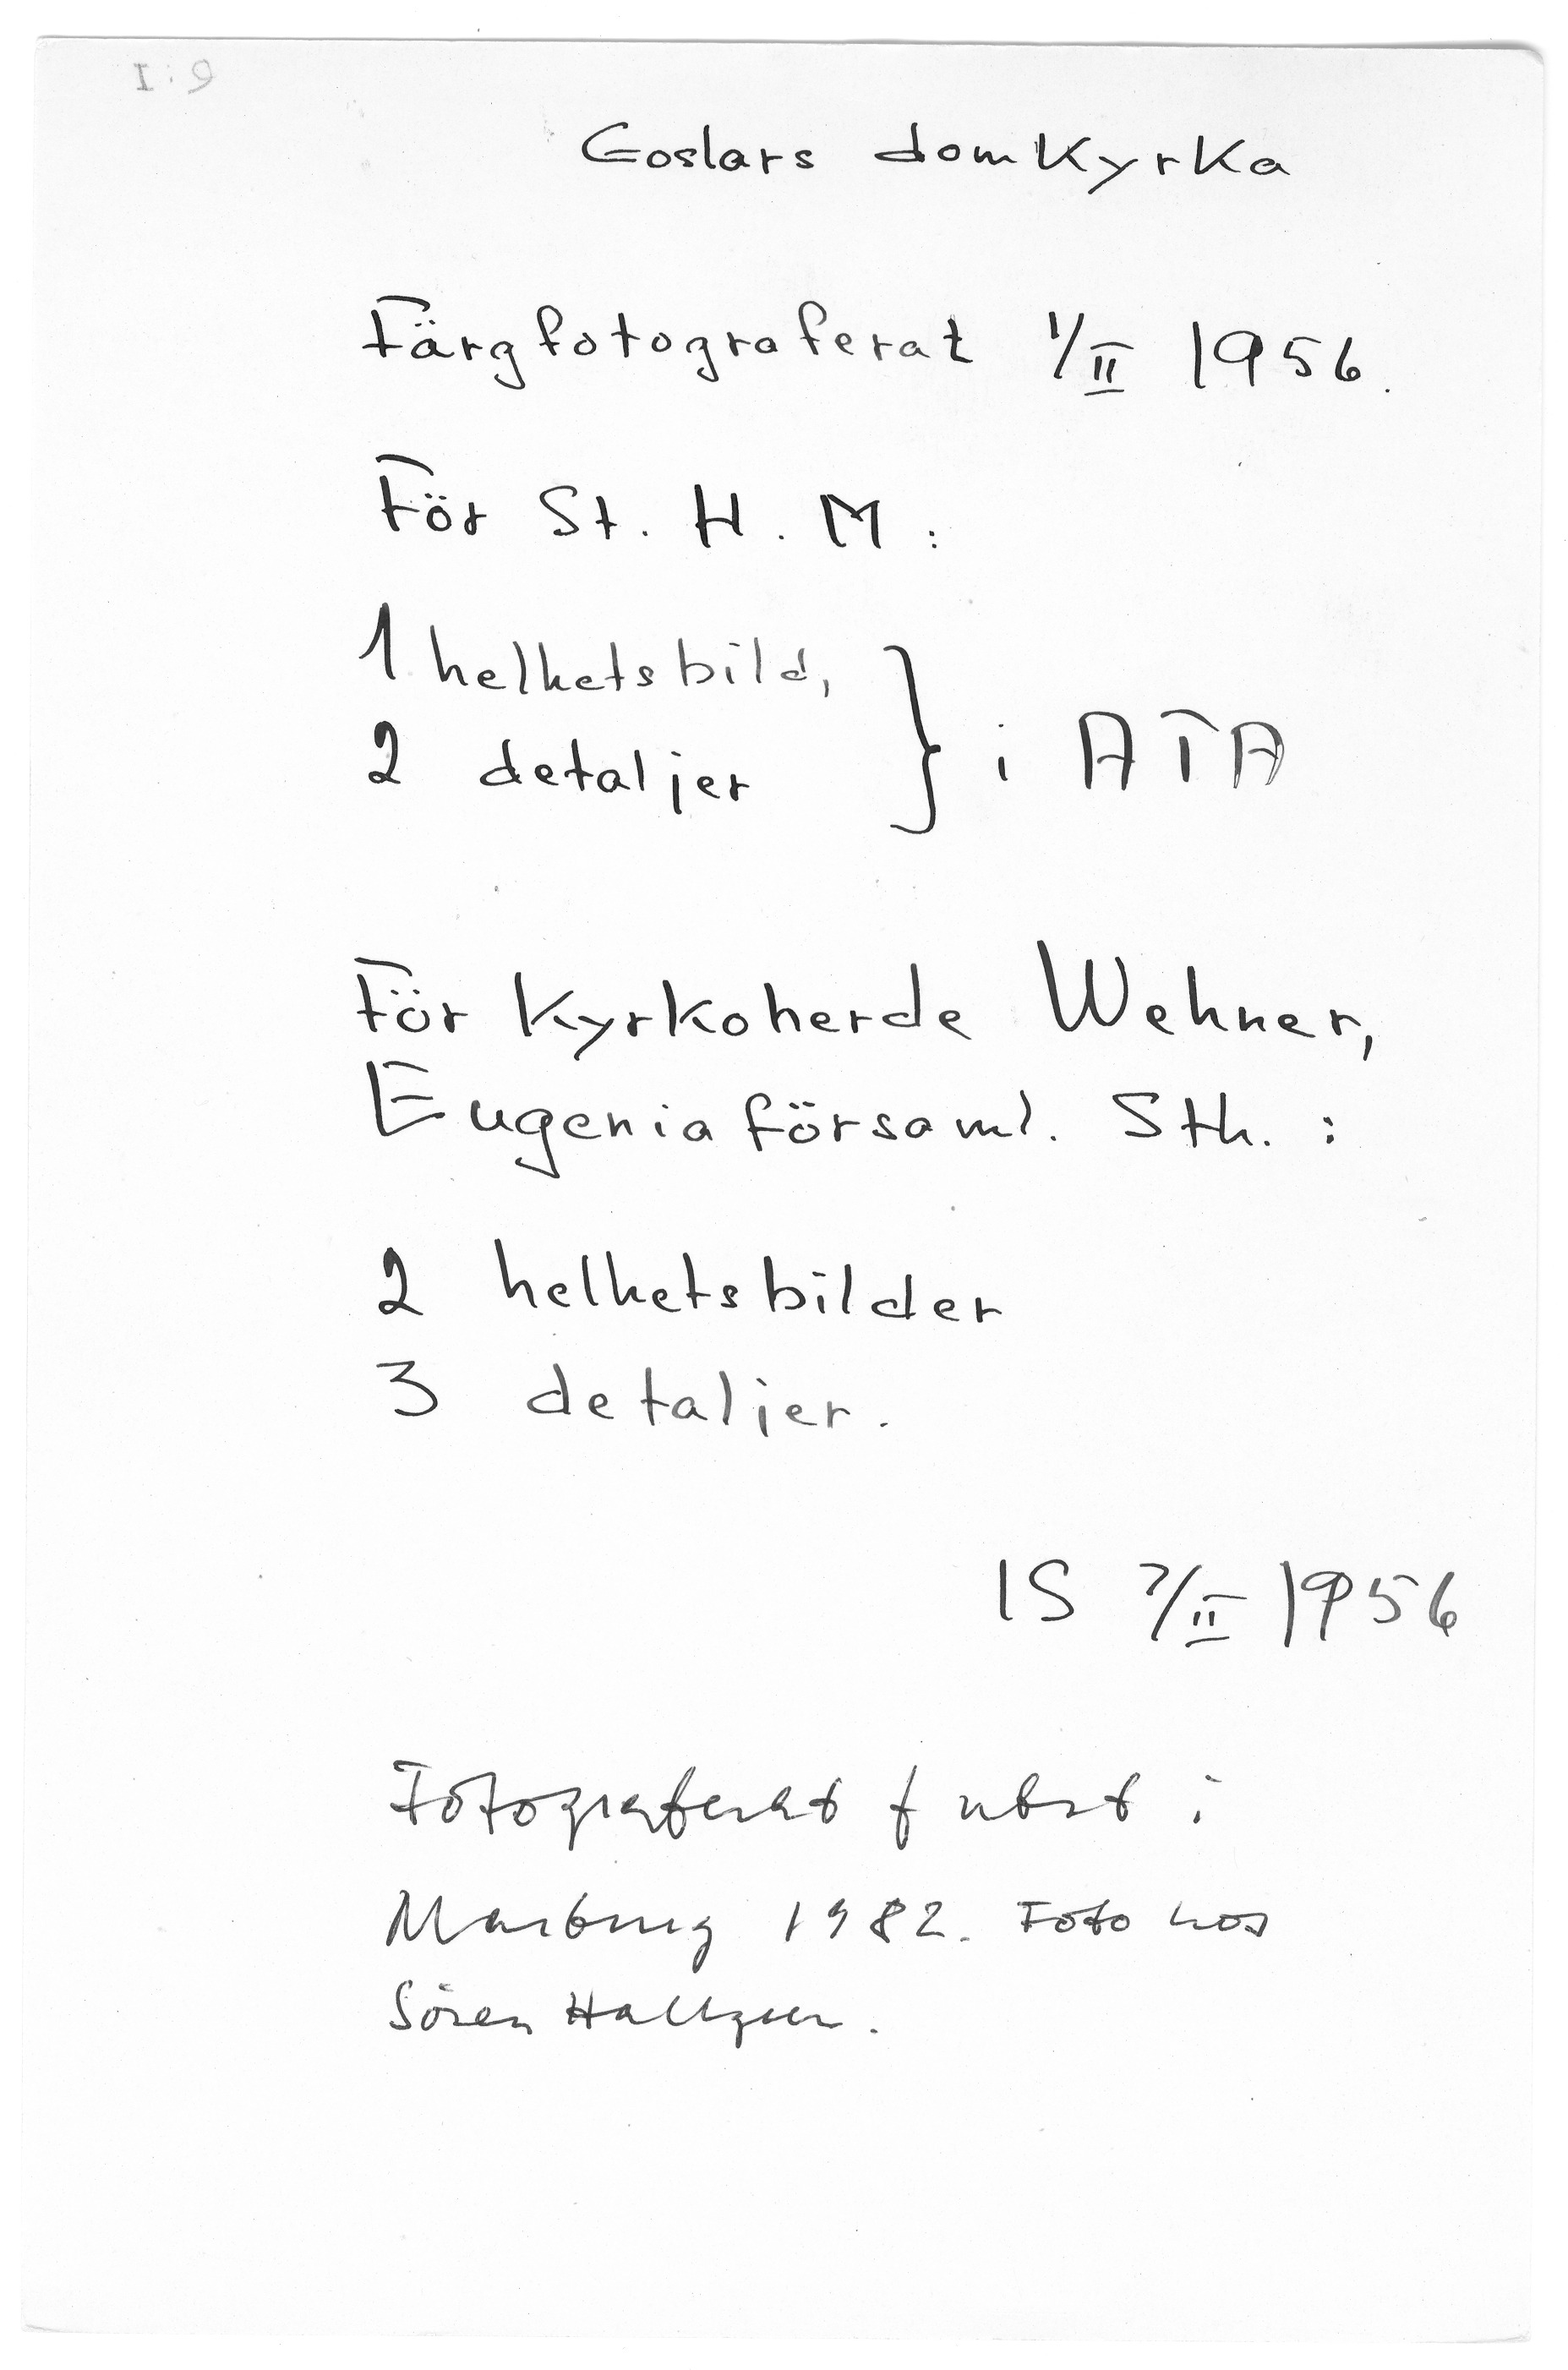 Goslars domkyrka
Färgfotograferat 1/II 1956.
För St. H. M:
1 helhetsbild,
2 detaljer } i ATA
För Kyrkoherde Wehner,
Eugeniaförsaml. Sth. :
2 helhetsbilder
3 detaljer.
IS 7/II 1956
Fotograferat f utst i
Marburg 1982. Foto hos
Sören Hallgren.